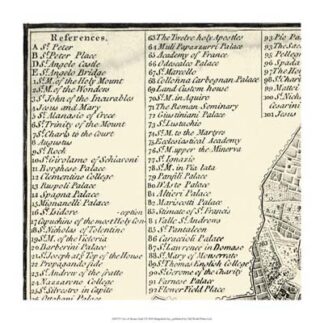 References.
A St. Peter
B St. Peter Place
D St. Angelo Castle
E St. Angelo Bridge
1 St. M. of the Holy Mount
2 St. M. of the Wonders
3 St. John of the Incurables
4 Jesus and Mary
5 St. Atanasio of Greco
6 St. Trinity of the Mount
7 St. Charls to the Cours
8 Augustus
9 St. Rock
10 St. Girolamo of Schiavoni
11 Borghase Palace
12 Clementino College
13 Ruspoli Palace
14 Spagna Palace
15 Mignanelli Palace
16 St. Isidore -ception
17 Capuchins of the most Holy Con
18 St. Nicholas of Tolentino
19 St. M. of the Victoria
20 Barberini Palace
21 St. Joseph's Top of the House
22 Propaganda side
23 St. Andrew of the fratte
24 Nazareno College
25 St. Claudio
26 St. Silvester
63 The Twelve holy Apostles
64 Muti Papazzurri Palace
65 Academy of France
66 Odescalco Palace
67 St. Marcello
68 Collonna Carbegnan Palace
69 Land Custom house
70 St. M. in Aquiro
71 The Roman Seminary
72 Giustiniani Palace
73 St. Eustachio
74 St. M. to the Martyrs
75 Ecclesiastical Academy
76 St. M. upper the Minerva
77 St. Ignazio
78 St. M. in Via lata
79 Panfili Palace
80 D'Aste Palace
81 Altieri Palace
82 Mariscotti Palace
83 Stimate of St. Francis
84 Valle St. Andrews
85 St. Pantaleon
86 Caracioli Palace
87 St. Lawrence in Damaso
88 St. Mary of Monserrato
89 St. Thomas English College
90 St. Gerome of the Charity
91 Farnese Palace
92 Flower Field Place
93 Pio Pa
94 The Sac
95 Pellegri
96 Spada
97 The Hosp
98 St. Char
99 Mattei
100 St. Nich
Cesarini
101 Jesus